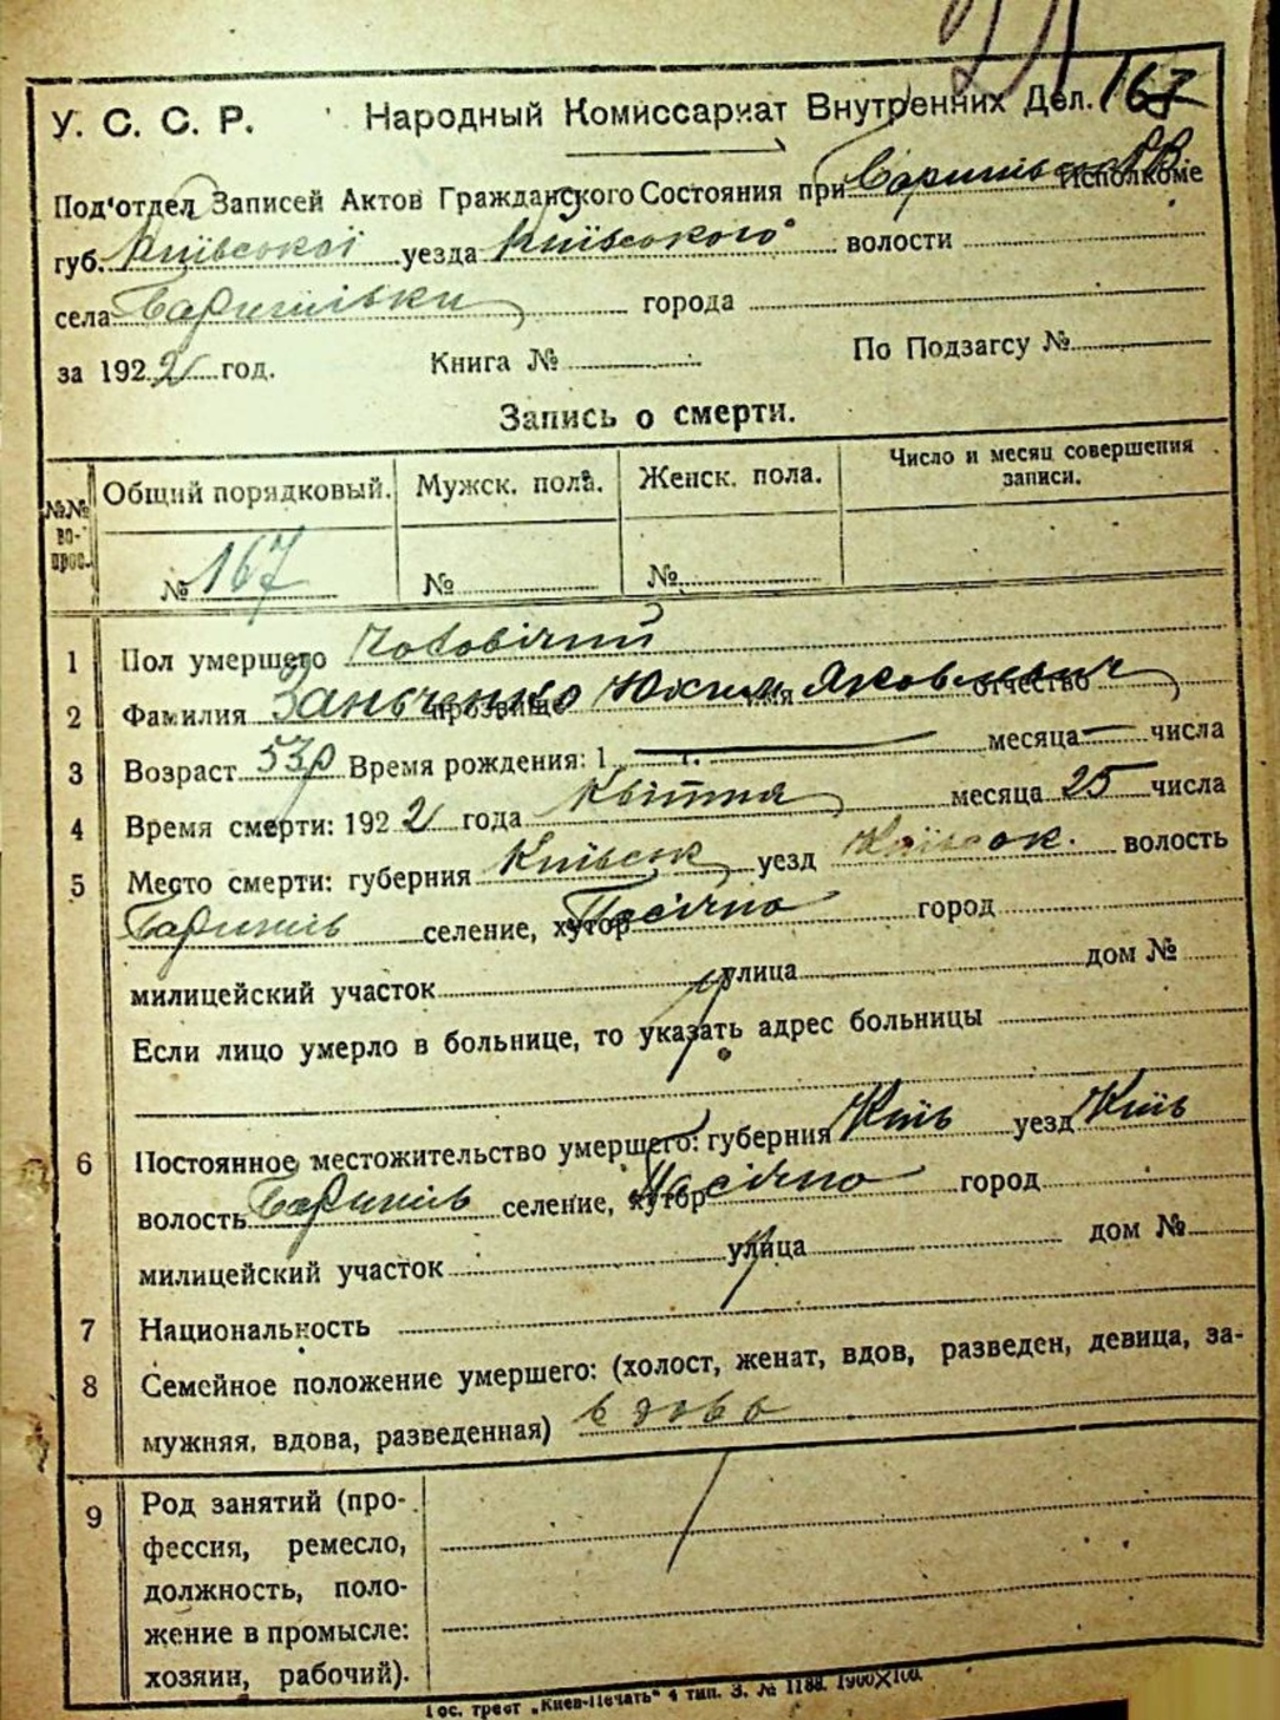 21
У. С. С. Р. Народный Комиссариат Внутренних Дел. 167
Под'отдел Записей Актов Гражданского Состояния при Исполкоме
губ. Київської уезда Київського волости
села Баришівки города
за 1922 год. Книга № По Подзагсу №
Запись о смерти.
№№ вопрос. Общий порядковый. Мужск. пола. Женск. пола. Число и месяц совершения записи.
№ 167 № №
1 Пол умершего Чоловічий
2 Фамилия прозвище Юхим имя Яковлевич отчество
3 Возраст 53р Время рождения: 1 г. месяца числа
4 Время смерти: 1922 года Квітня месяца 25 числа
5 Место смерти: губерния Київськ уезд Київськ. волость
Баришів селение, хутор Пасічно город
милицейский участок улица дом №
Если лицо умерло в больнице, то указать адрес больницы
6 Постоянное местожительство умершего: губерния Київ уезд Київ
волость Баришів селение, хутор Пасічно город
милицейский участок улица дом №
7 Национальность
8 Семейное положение умершего: (холост, женат, вдов, разведен, девица, за-
мужняя, вдова, разведенная) вдов
9 Род занятий (про-
фессия, ремесло,
должность, поло-
жение в промысле:
хозяин, рабочий).
Гос. трест „Киев-Печать" 4 тип. З. № 1188. 1900×100.